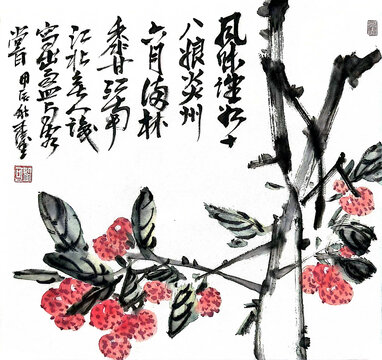 風味誰知十
八娘炎州
六月海林
香江南
江北無人識
寫出与客
嘗甲辰秋